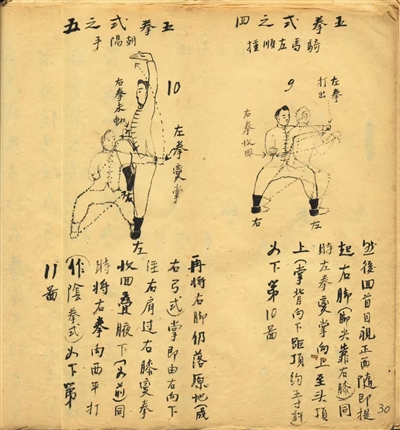 王拳式之四
騎馬左順捶
9
左拳
打出
右拳收回
右
左
然後回首目視正面隨即提
起右脚(脚尖靠右膝)同
時左拳變掌向上至头頂
上(掌背向下距頂約五寸許)
如下第10圖
王拳式之五
朝陽手
10
右拳未動
左拳變掌
左
再將右脚仍落原地(成
右弓式)掌即由右向下
径右肩过右膝變拳
收回叠腋下(如前)同
時將右拳向西平打
(作陰拳式)如下第
11圖
30